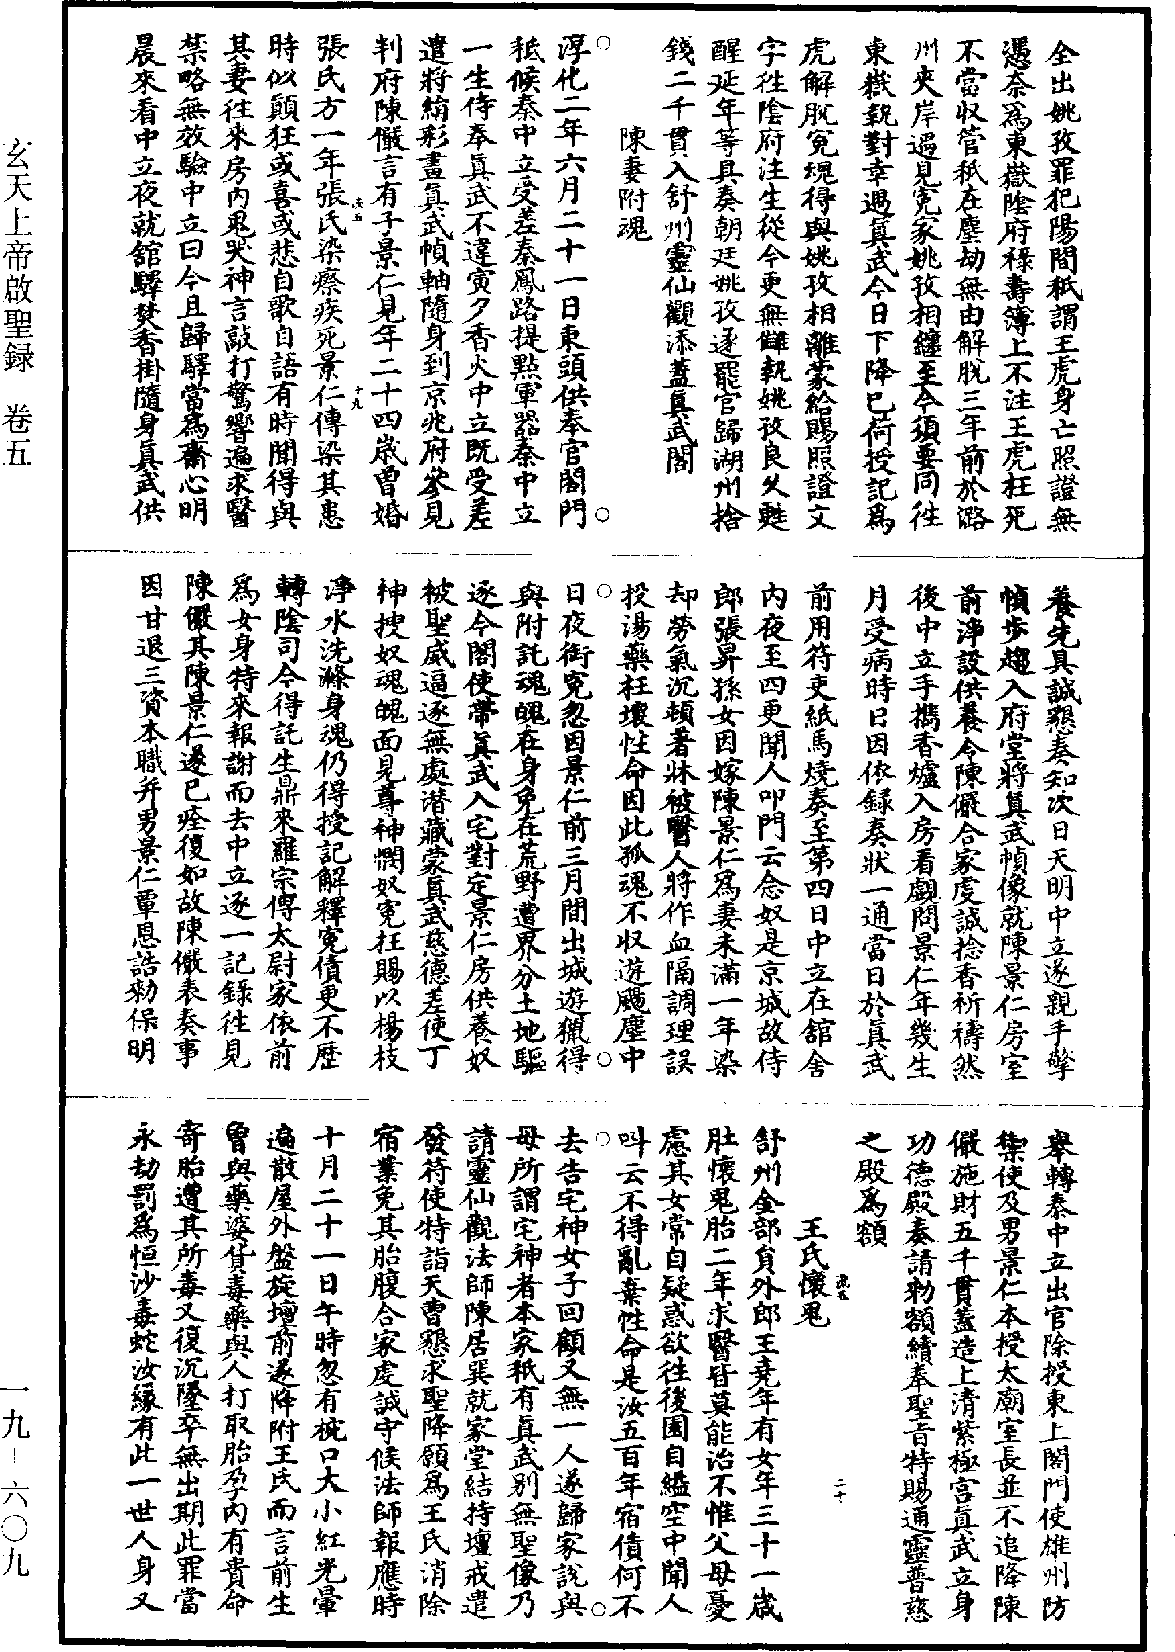 全出姚孜罪犯陽間秖謂王虎身亡照證無
憑奈為東嶽陰府祿壽簿上不注王虎枉死
不當収管秖在塵劫無由解脫三年前於潞
州夾岸遇見寃家姚孜相纏至今須要同往
東嶽執對幸遇真武今日下降已荷授記為
虎解脫寃䰟得與姚孜相離蒙給賜照證文
字往陰府注生從今更無讎執姚孜良久甦
醒延年等具奏朝廷姚孜遂罷官歸湖州捨
錢二千貫入舒州靈仙觀添蓋真武閣
陳妻附魂
淳化二年六月二十一日東頭供奉官閤門
秪候秦中立受差秦鳳路提點軍器秦中立
一生侍奉真武不違寅夕香火中立既受差
遣將綃彩畫真武幀軸隨身到京兆府參見
判府陳儼言有子景仁見年二十四歲曾婚
張氏方一年張氏染瘵疾死景仁傳染其患
時似顛狂或喜或悲自歌自語有時聞得與
其妻往來房內鬼哭神言敲打驚響遍求醫
禁略無效驗中立曰今且歸驛當為齋心明
晨來看中立夜就舘驛焚香掛隨身真武供
養先具誠懇奏知次日天明中立遂親手擎
幀步趨入府堂將真武幀像就陳景仁房室
前淨設供養令陳儼合家虔誠捻香祈禱然
後中立手擕香爐入房看覷問景仁年幾生
月受病時日因依録奏狀一通當日於真武
前用符吏紙馬燒奏至第四日中立在舘舍
內夜至四更聞人叩門云念奴是京城故侍
郎張昇孫女因嫁陳景仁為妻未滿一年染
却勞氣沉頓著牀被醫人將作血隔調理誤
投湯藥枉壞性命因此孤魂不収遊颺塵中
日夜銜寃忽因景仁前三月間出城遊獵得
與附託魂魄在身免在荒野遭界分土地驅
逐今閤使帶真武入宅對定景仁房供養奴
被聖威逼逐無處潜藏蒙真武慈德差使丁
神捜奴魂魄面見尊神憫奴寃枉賜以楊枝
淨水洗滌身魂仍得授記解釋寃債更不歷
轉陰司今得託生鼎來羅宗傳太尉家依前
為女身特來報謝而去中立逐一記錄往見
陳儼其陳景仁遂已痊復如故陳儼表奏事
因甘退三資本職并男景仁覃恩誥勑保明
舉轉秦中立出官除授東上閤門使雄州防
禦使及男景仁本授太廟室長並不追降陳
儼施財五千貫蓋造上清紫極宮真武立身
功德殿奏請勑額續奉聖旨特賜通靈普慈
之殿為額
王氏懷鬼
舒州金部貟外郎王堯年有女年三十一歲
肚懷鬼胎二年求醫皆莫能治不惟父母憂
慮其女常自疑惑欲往後園自縊空中聞人
叫云不得亂棄性命是汝五百年宿債何不
去告宅神女子回顧又無一人遂歸家說與
母所謂宅神者本家秖有真武別無聖像乃
請靈仙觀法師陳居巽就家堂結持壇戒遣
發符使特詣天曹懇求聖降願為王氏消除
宿業免其胎腹合家虔誠守候法師報應時
十月二十一日午時忽有椀口大小紅光暈
遍散屋外盤旋壇前遂降附王氏而言前生
曾與藥婆貨毒藥與人打取胎孕內有貴命
寄胎遭其所毒又復沉墜卒無出期此罪當
永劫罰為恒沙毒蛇汝緣有此一世人身又
玄天上帝啟聖録　卷五
一九－六〇九
十九
二十